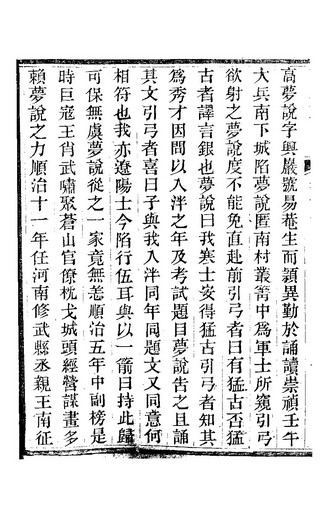 高夢說字興巖號易菴生而穎異勤於誦讀崇禎壬午
大兵南下城陷夢說匿南村叢箐中為軍士所窺引弓
欲射之夢說度不能免直赴前引弓者曰有猛古否猛
古者譯言銀也夢說曰我寒士安得猛古引弓者知其
為秀才因問以入泮之年及考試題目夢說告之且誦
其文引弓者喜曰子與我入泮同年同題文又同意何
相符也我亦遼陽士今陷行伍耳與以一箭曰持此歸
可保無虞夢說從之一家竟無恙順治五年中副榜是
時巨寇王肖武嘯聚蒼山官僚枕戈城頭經營謀畫多
賴夢說之力順治十一年任河南修武縣丞親王南征